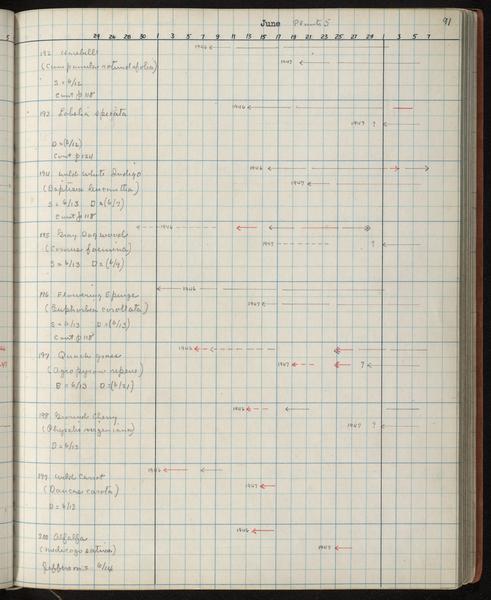 91
June Plants 5
29 24 26 28 30 1 3 5 7 9 11 13 15 17 19 21 23 25 27 29 1 3 5 7
192 Harebell 1946
(Campanula rotundifolia) 1947
S = 6/12
Cont p 118
193 Lobelia spicata 1946
1947 ?
D = (6/12)
Cont p 124
194 Wild White Indigo 1946
(Baptisia leucantha) 1947
S = 6/13 D = (6/7)
Cont p 118
195 Gray Dogwood 1946
(Cornus femina) 1947 ?
S = 6/13 D = (6/9)
196 Flowering Spurge 1946
(Euphorbia corollata) 1947
S = 6/13 D = (6/13)
Cont p 118
197 Quack grass 1946
(Agropyron repens) 1947 ?
B = 6/13 D = (6/21)
198 Ground Cherry 1946
(Physalis virginiana) 1947 ?
D = 6/13
199 Wild Carrot 1946
(Daucus carota) 1947
D = 6/13
200 Alfalfa 1946
(Medicago sativa) 1947
Jefferson = 6/14